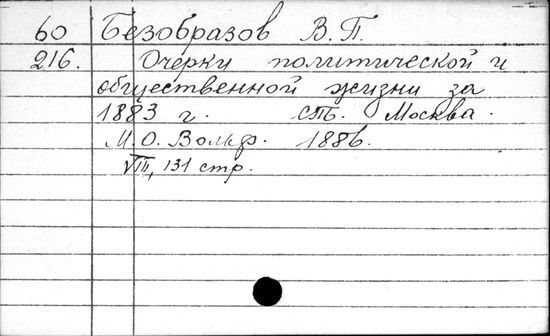 60 Безобразов В.П.
216. Очерки политической и
общественной жизни за
1883 г. СПБ. Москва.
М.О. Вольф. 1886.
VIII, 131 стр.